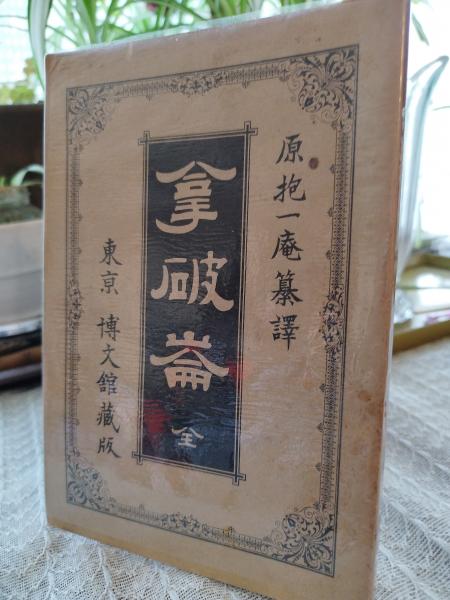 原抱一庵纂譯
拿破崙 全
東京 博文館藏版